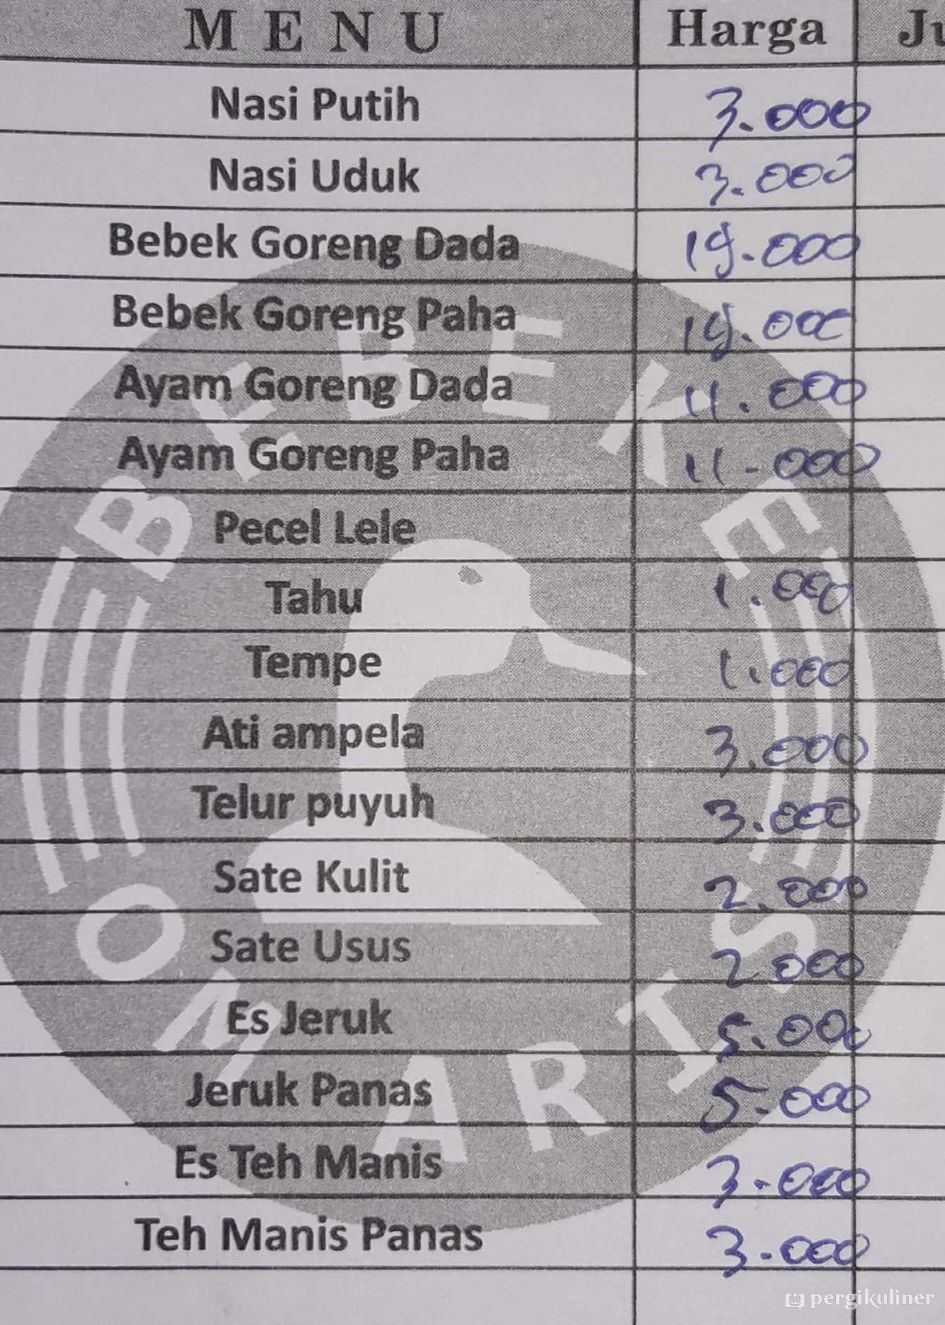 MENU Harga Ju
Nasi Putih 3.000
Nasi Uduk 3.000
Bebek Goreng Dada 19.000
Bebek Goreng Paha 19.000
Ayam Goreng Dada 11.000
Ayam Goreng Paha 11-000
Pecel Lele
Tahu 1.000
Tempe 1.000
Ati ampela 3.000
Telur puyuh 3.000
Sate Kulit 2.000
Sate Usus 2.000
Es Jeruk 5.000
Jeruk Panas 5.000
Es Teh Manis 3.000
Teh Manis Panas 3.000
BEBEK E
OM ARIS
pergikuliner